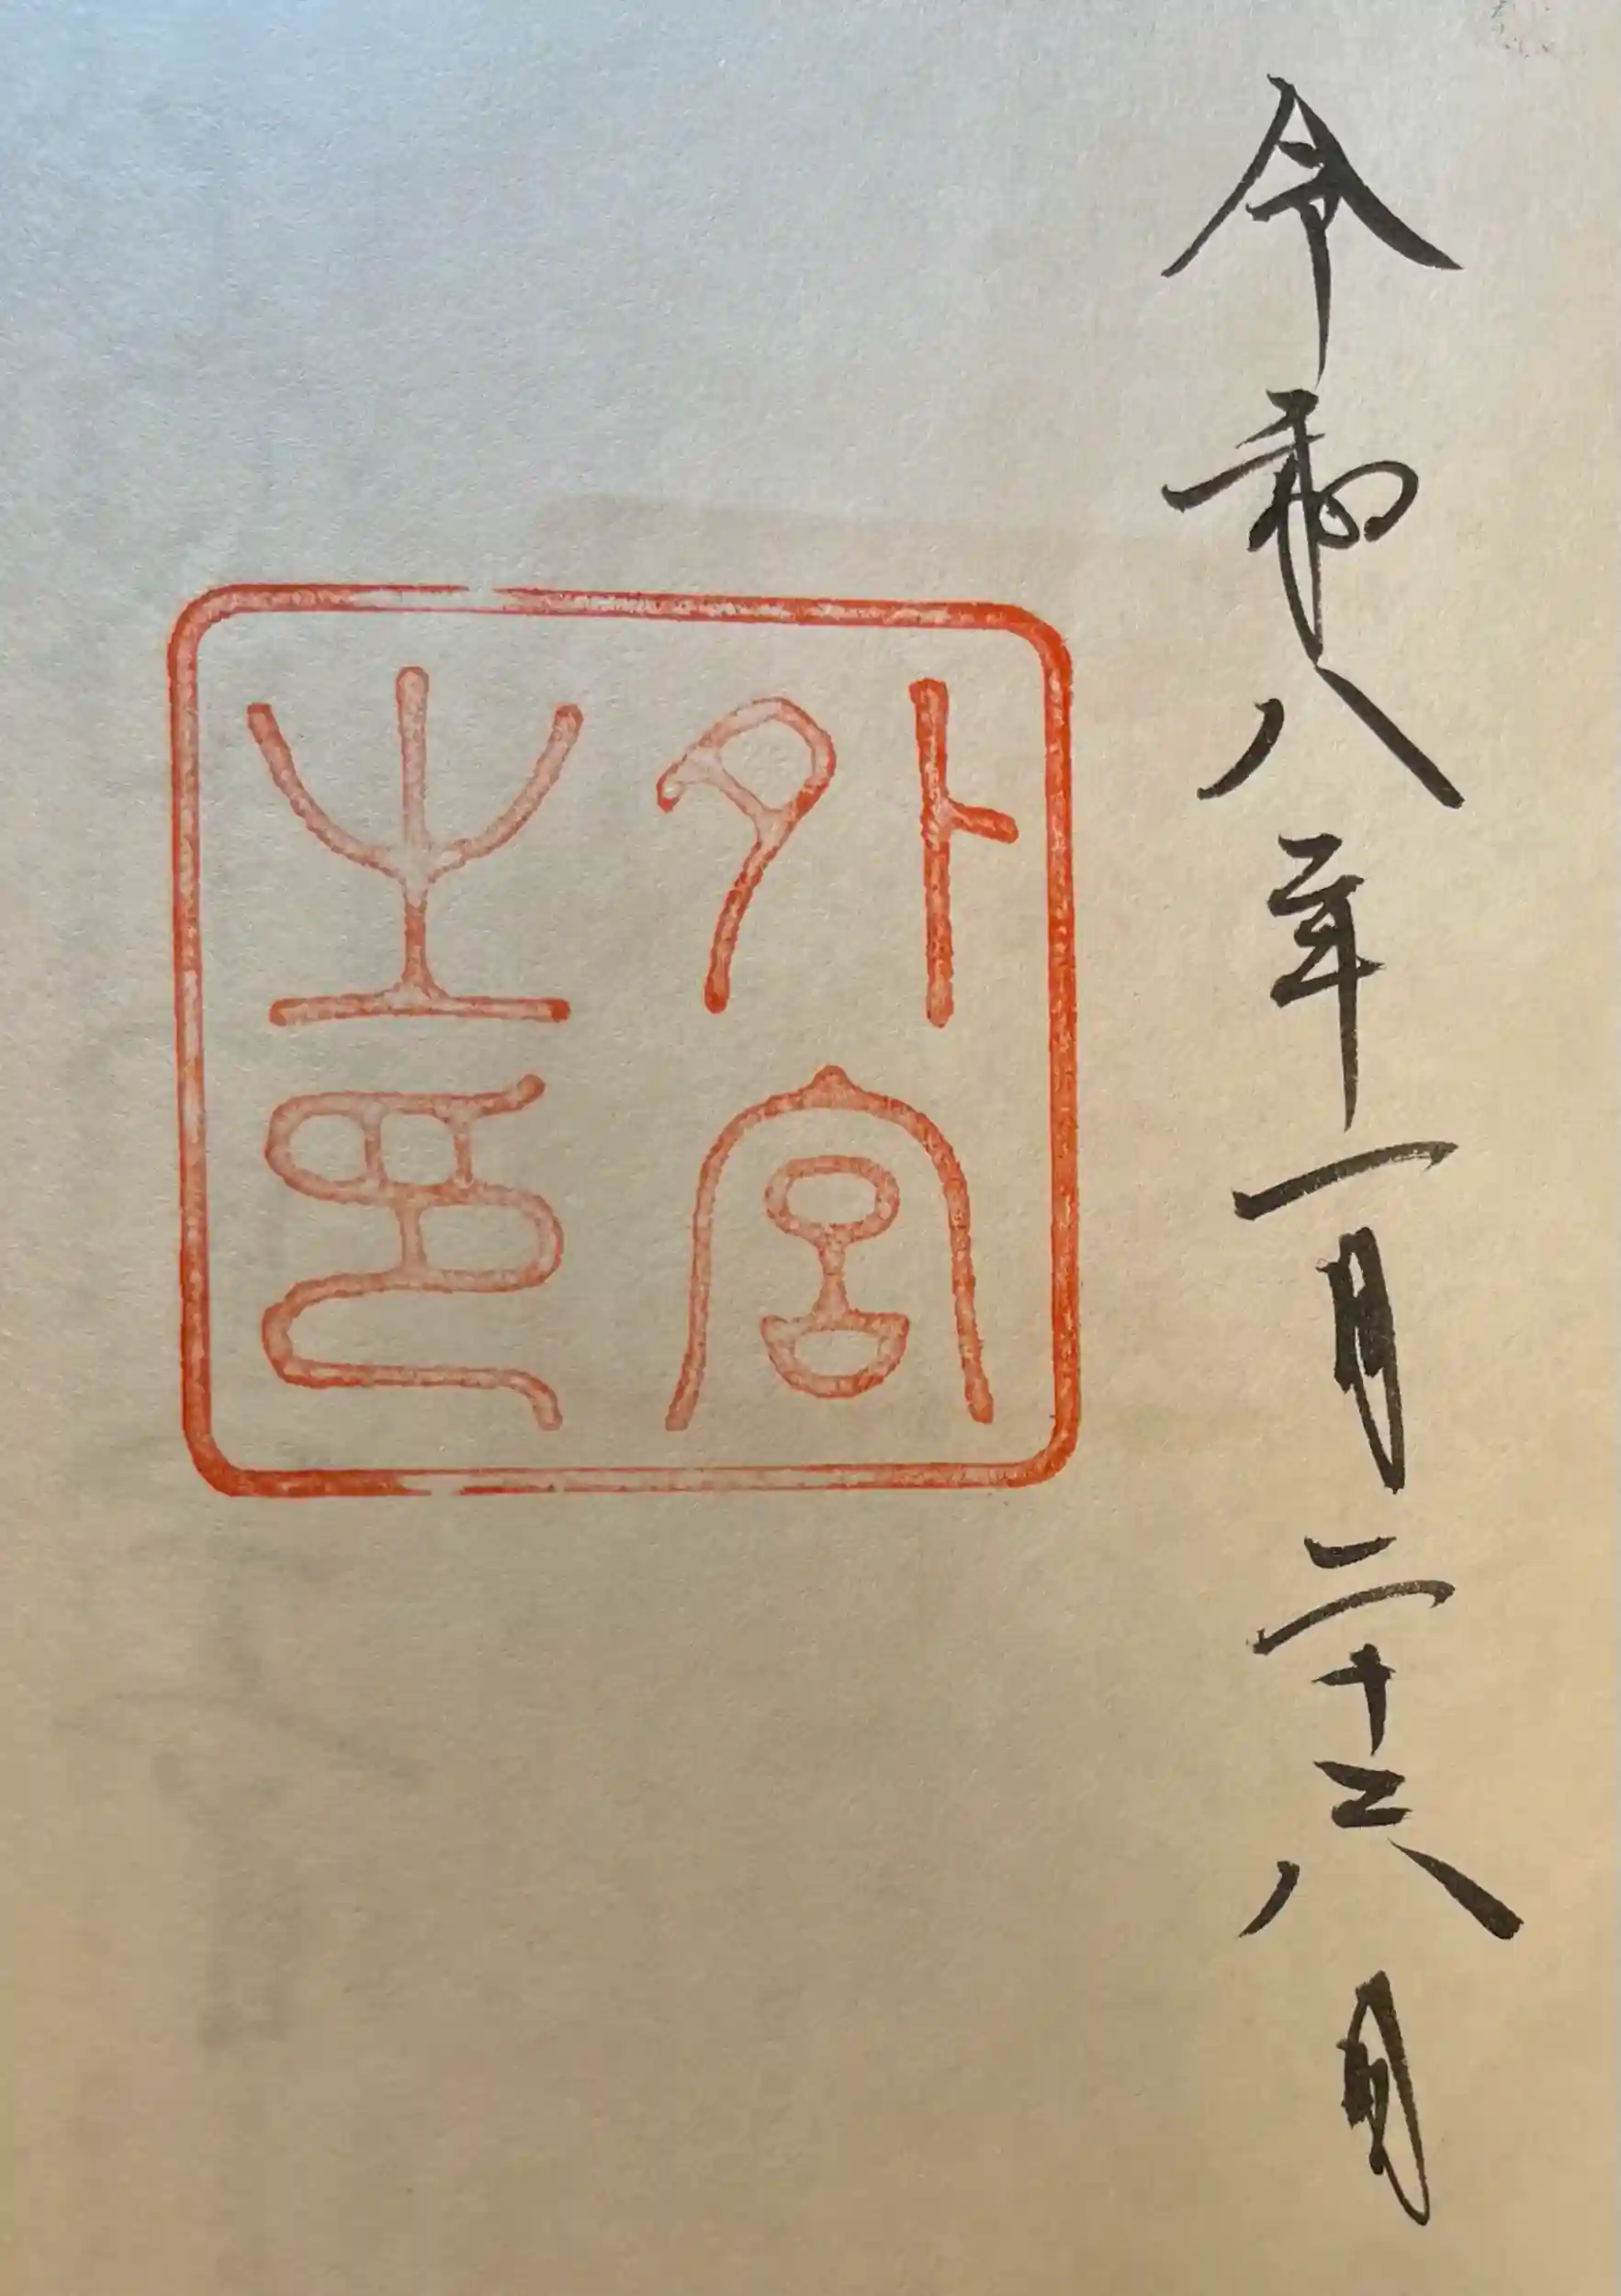 令和八年一月二十六日
外宮
之印